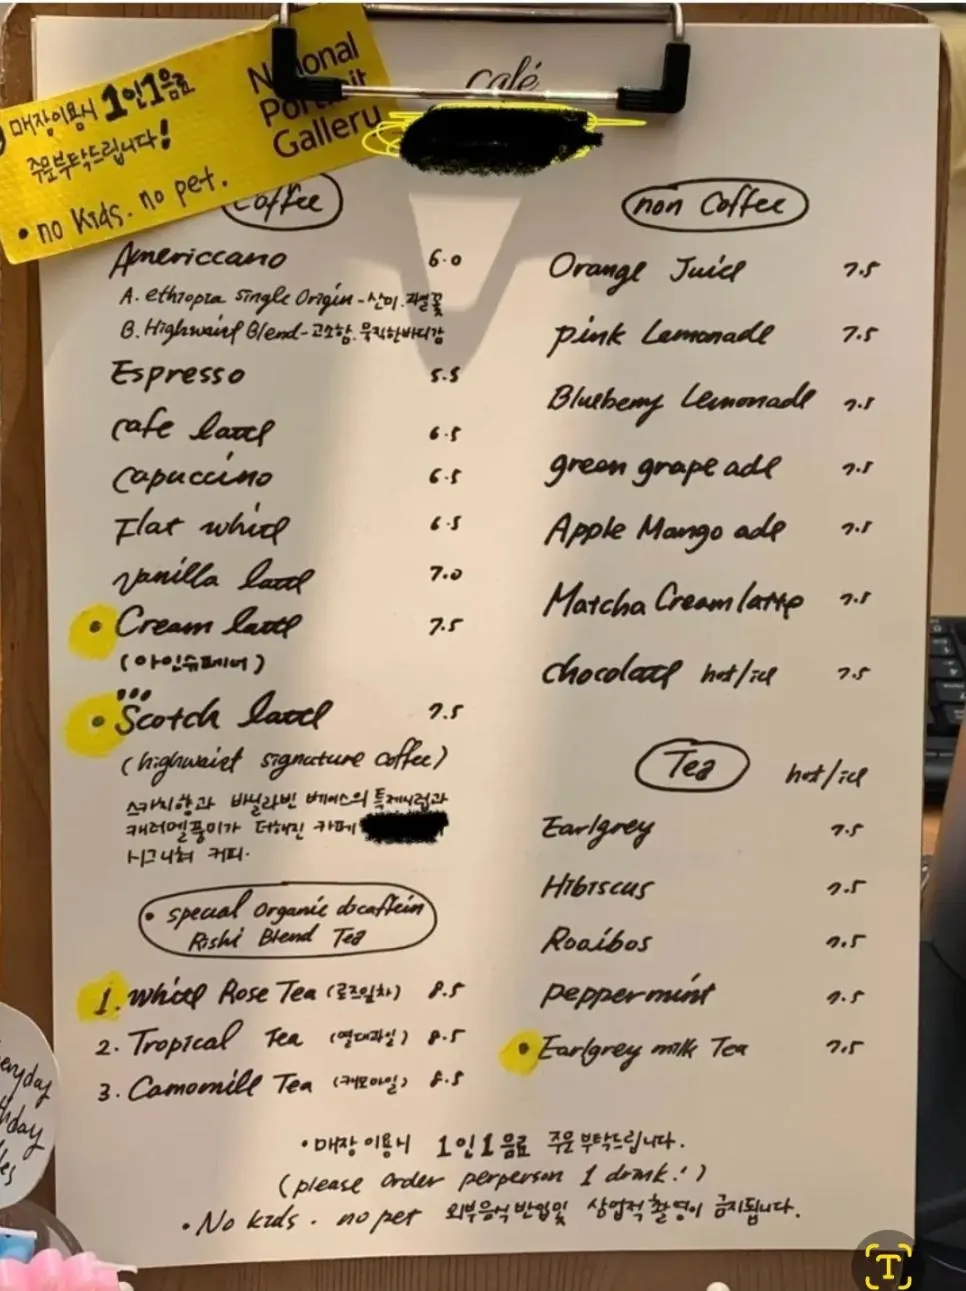 매장이용시 1인1음료
주문부탁드립니다!
• no kids. no pet.
National
Portrait
Gallery
café
Coffee
Americcano 6.0
A. ethiopia single Origin - 산미.
B. Highwaist Blend - 고소함. 묵직한바디감
Espresso 5.5
cafe latte 6.5
capuccino 6.5
Flat white 6.5
vanilla latte 7.0
• Cream latte 7.5
(아인슈페너)
• Scotch latte 7.5
(highwaist signature coffee)
스카치향과 바닐라빈 베이스의 특제시럽과
캐러멜풍미가 더해진 카페
시그니처 커피.
• special organic dicaffein
Rishi Blend Tea
1. white Rose Tea (로즈잎차) 8.5
2. Tropical Tea (열대과일) 8.5
3. Camomill Tea (캐모마일) 8.5
non Coffee
Orange Juice 7.5
pink Lemonade 7.5
Blueberry Lemonade 7.5
green grape ade 7.5
Apple Mango ade 7.5
Matcha Cream latte 7.5
chocolate hot/ice 7.5
Tea hot/ice
Earlgrey 7.5
Hibiscus 7.5
Rooibos 7.5
peppermint 7.5
• Earlgrey milk Tea 7.5
• 매장 이용시 1인1음료 주문 부탁드립니다.
(please order perperson 1 drink!)
• No kids. no pet 외부음식 반입및 상업적 촬영이 금지됩니다.